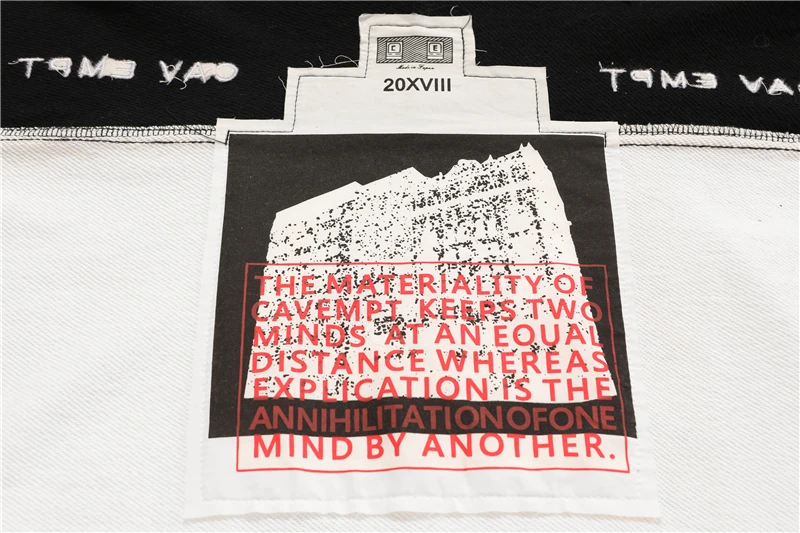 C E
Made in Japan
20XVIII
CAV EMPT
CAV EMPT
THE MATERIALITY OF
CAVEMPT KEEPS TWO
MINDS AT AN EQUAL
DISTANCE WHEREAS
EXPLICATION IS THE
ANNIHILITATION OF ONE
MIND BY ANOTHER.